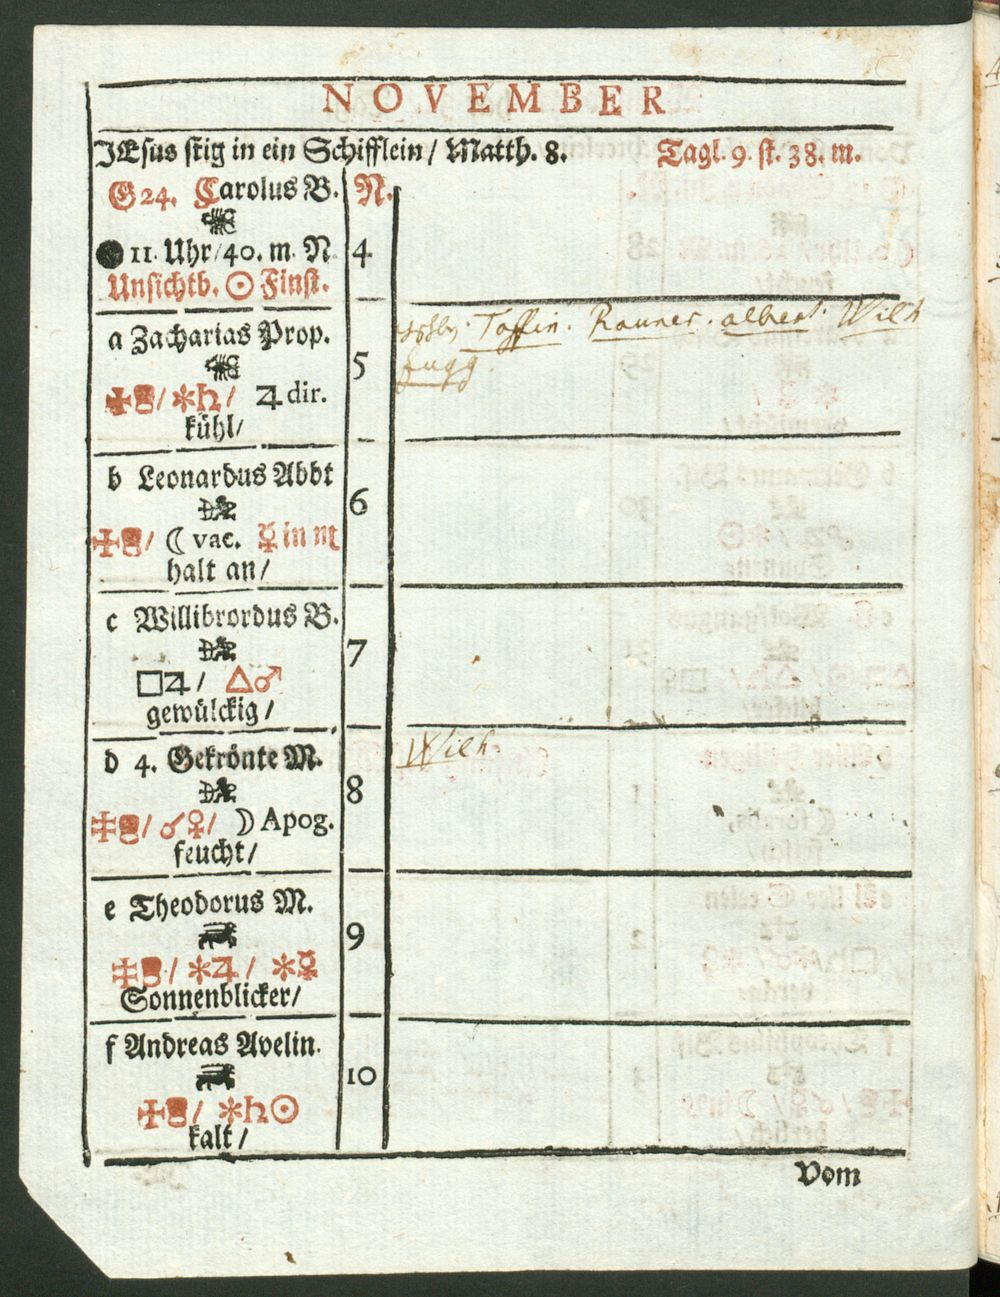 NOVEMBER
JEsus stig in ein Schifflein/ Matth. 8. Tagl. 9. st. 38. m.
G 24. Carolus B. N.
11. Uhr/40. m. N 4
Unsichtb. ☉ Finst.
a Zacharias Prop. Toffin. Rauner. albert. Wilh
5 fugg.
✻♄/ ♃ dir.
kühl/
b Leonardus Abbt
6
☾ vac. ☿ in ♏
halt an/
c Willibrordus B.
7
□♃/ △♂
gewülckig/
d 4. Gekrönte M. Wilh
8
☌♀/ ☽ Apog.
feucht/
e Theodorus M.
9
✻♃/ ✻☿
Sonnenblicker/
f Andreas Avelin.
10
✻♄☉
kalt/
Vom